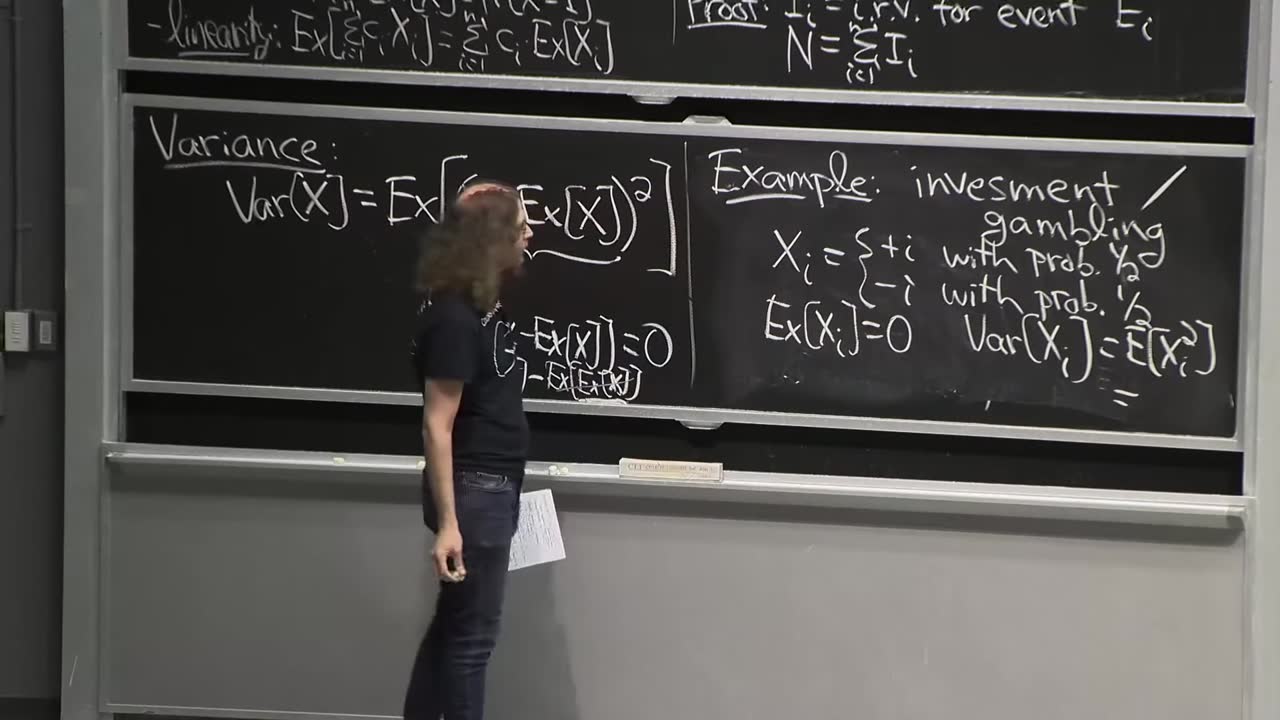 -linearity: Ex[∑ c_i X_i] = ∑ c_i Ex[X_i]
i=1 i=1
Proof: I_i = i.r.v. for event E_i
N = ∑ I_i
i=1
Variance:
Var[X] = Ex[( Ex[X])²]
-Ex[X]] = 0
] - Ex[Ex[X]]
Example: invesment /
gambling
X_i = { +i with prob. 1/2
-i with prob. 1/2
Ex[X_i] = 0 Var[X_i] = E[X_i²]
=